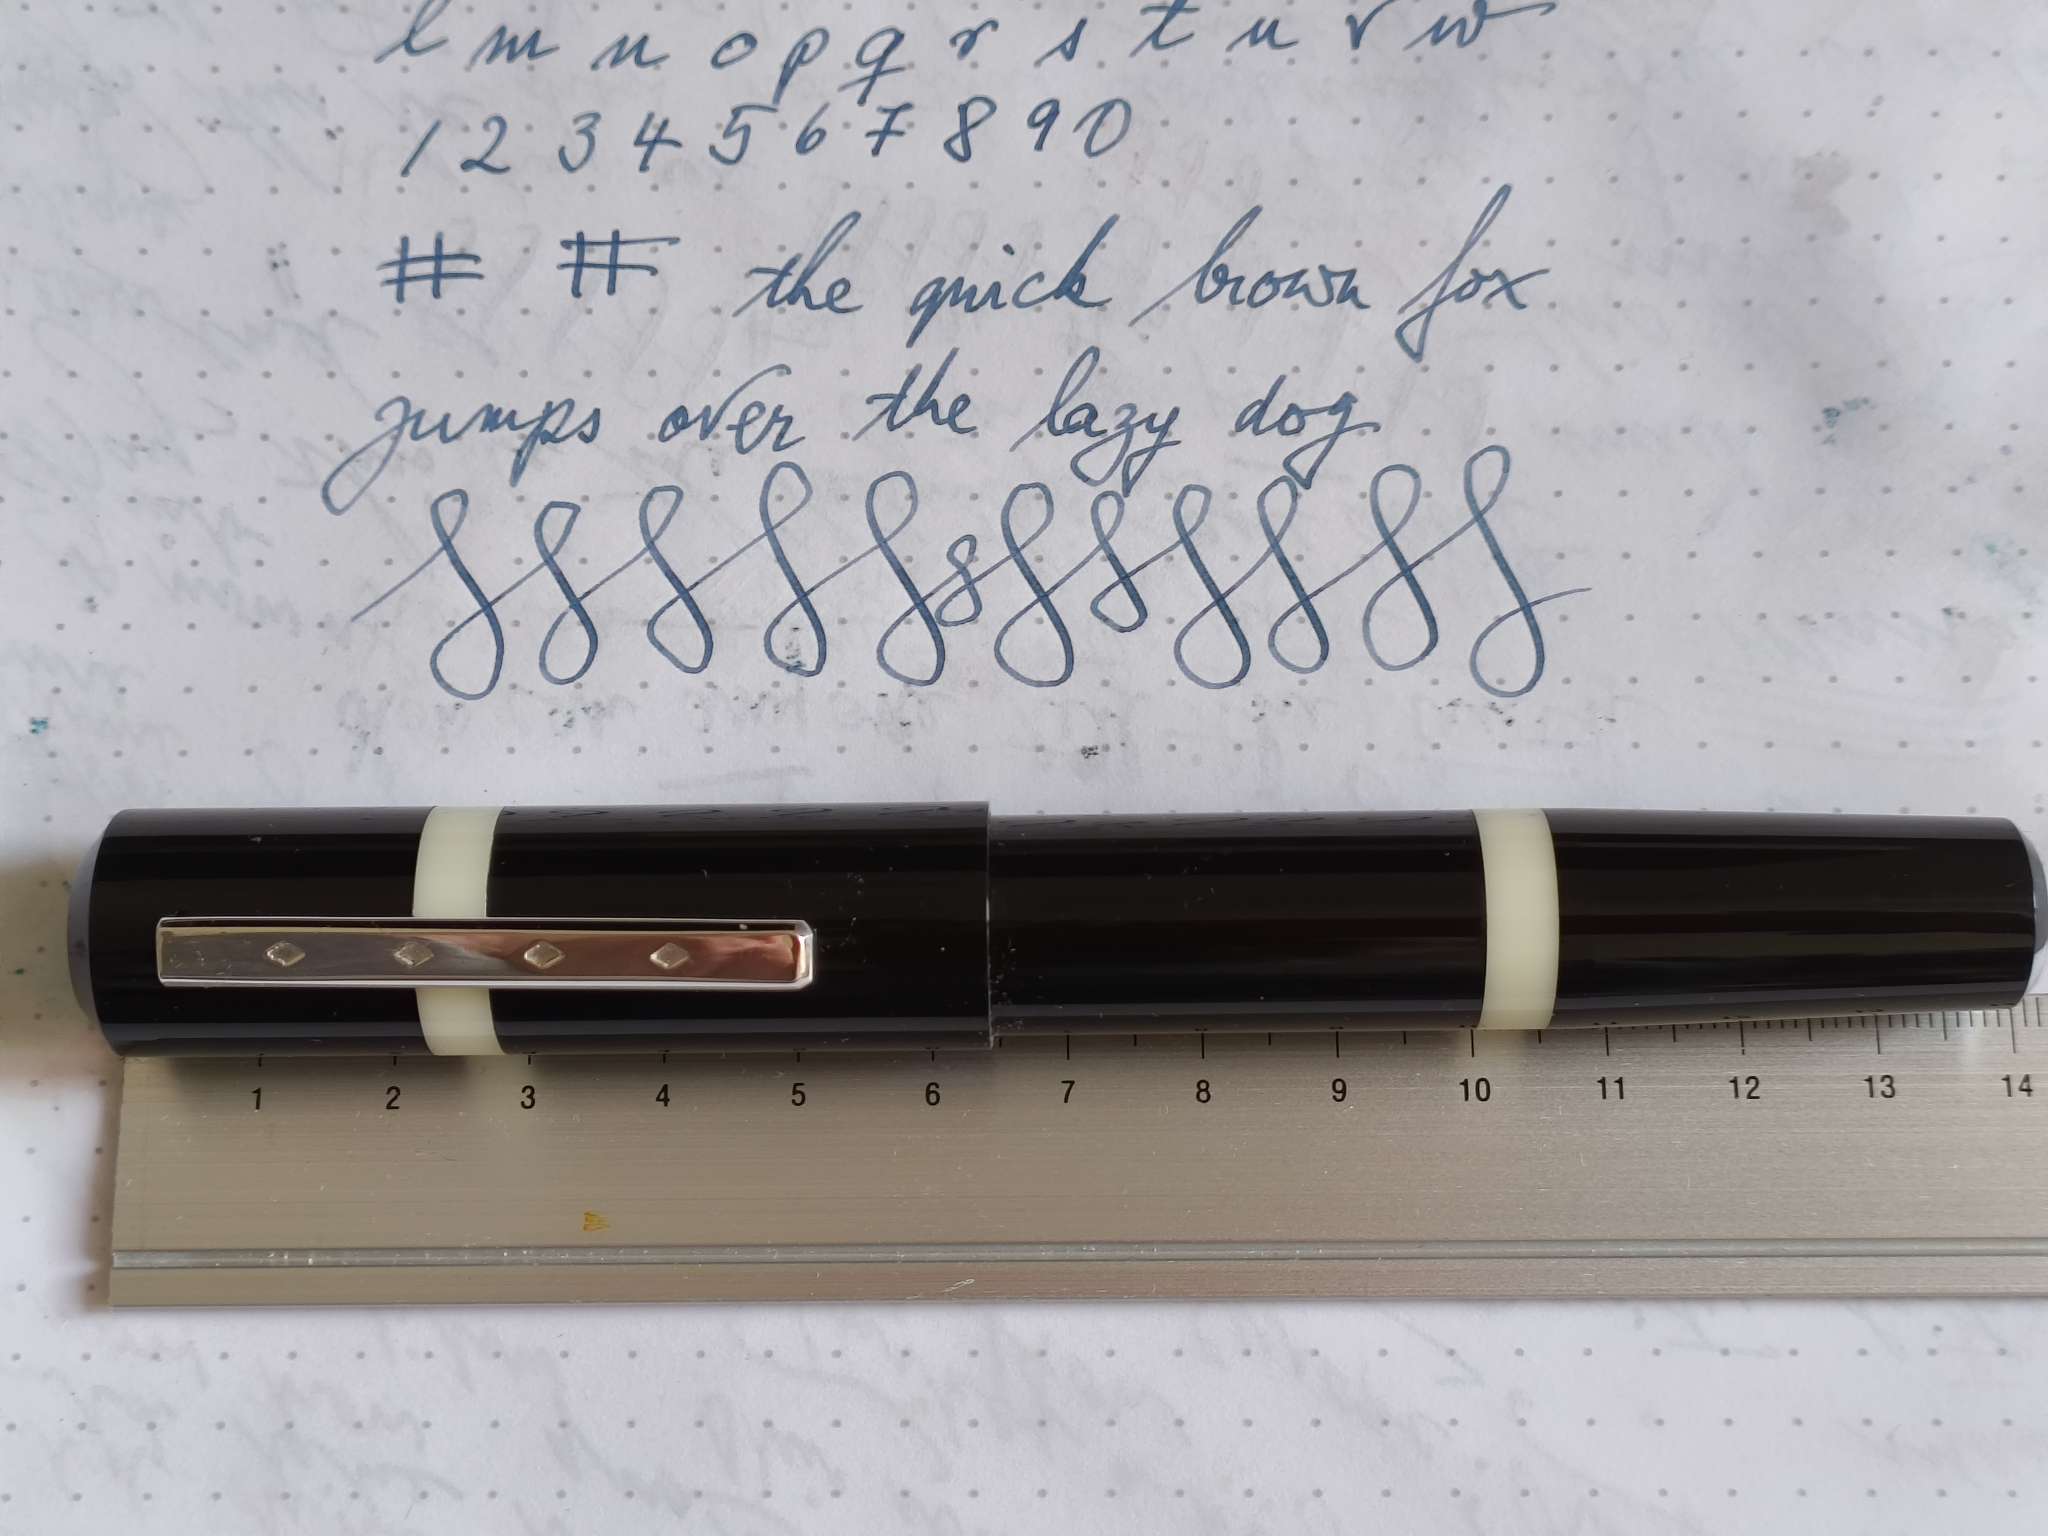 l m n o p q r s t u v w
1 2 3 4 5 6 7 8 9 0
# # the quick brown fox
jumps over the lazy dog
1 2 3 4 5 6 7 8 9 10 11 12 13 14